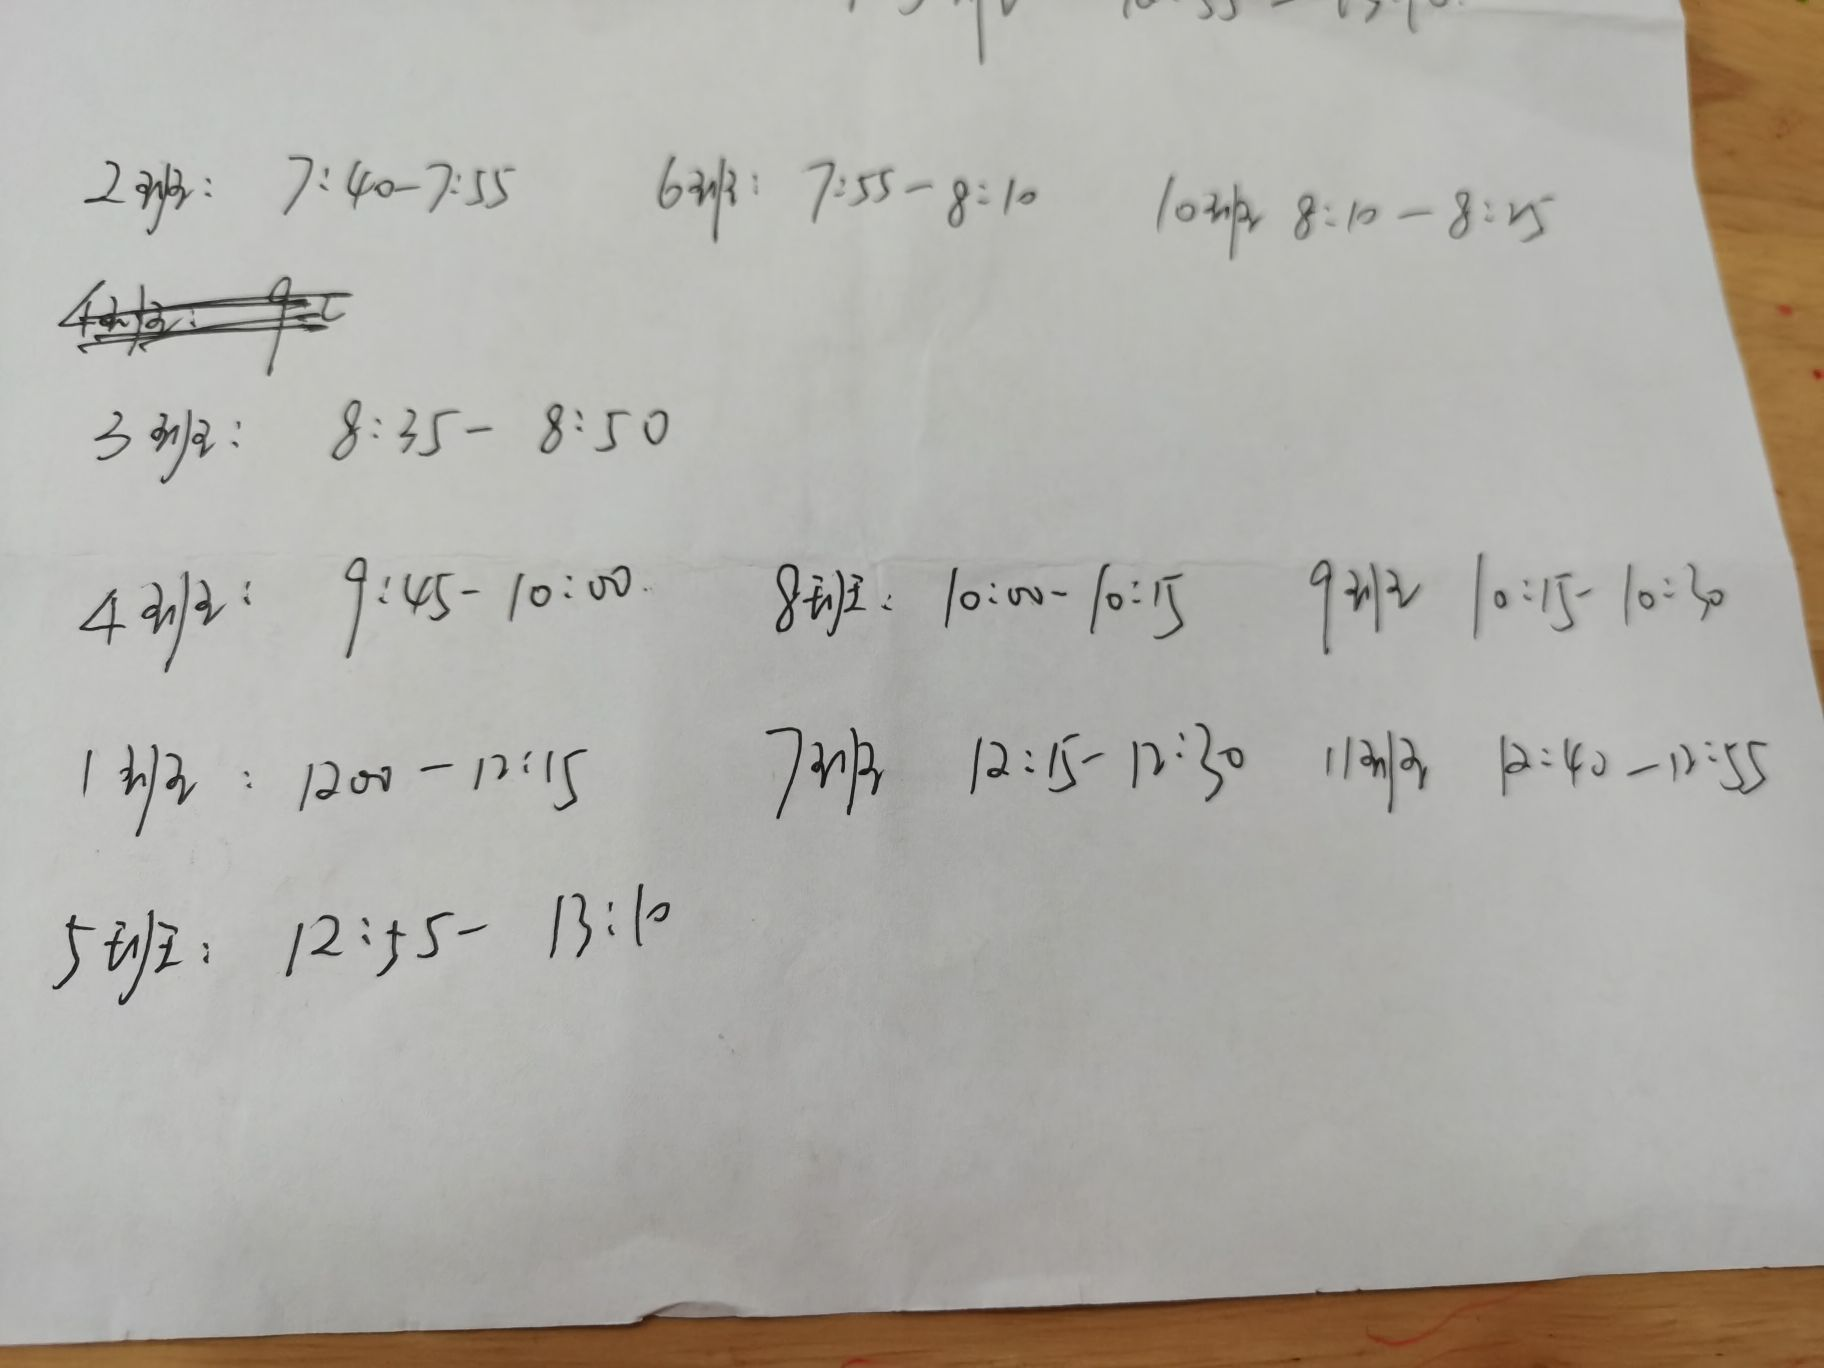 2班: 7:40-7:55 6班: 7:55-8:10 10班 8:10-8:25
3班: 8:35-8:50
4班: 9:45-10:00 8班: 10:00-10:15 9班 10:15-10:30
1班: 1200-12:15 7班 12:15-12:30 11班 12:40-12:55
5班: 12:55-13:10